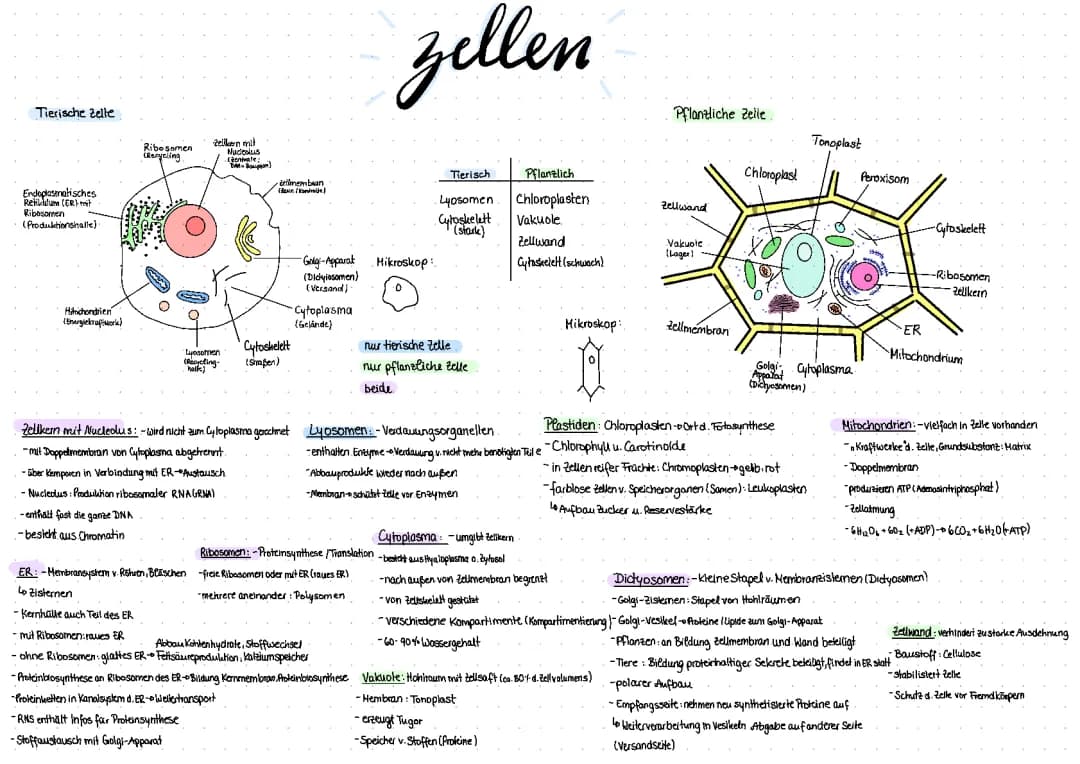 zellen
Tierische Zelle
Ribosomen
(Recycling
Zellkern mit
Nucleolus
(Zentrale;
DNA = Bauplan)
Zellmembran
(Zaun / Kontrolle)
Endoplasmatisches
Retikulum (ER) mit
Ribosomen
(Produktionshalle)
Golgi-Apparat
(Dictyosomen)
(Versand)
Cytoplasma
(Gelände)
Mitochondrien
(Energiekraftwerk)
Lysosomen
(Recycling-
halle)
Cytoskelett
(Straßen)
Tierisch Pflanzlich
Lyosomen Chloroplasten
Cytoskelett Vakuole
(stark) Zellwand
Cytoskelett (schwach)
Mikroskop:
nur tierische Zelle
nur pflanzliche Zelle
beide
Mikroskop:
Pflanzliche Zelle
Tonoplast
Chloroplast
Peroxisom
Zellwand
Cytoskelett
Vakuole
(Lager)
Ribosomen
Zellkern
Zellmembran
ER
Mitochondrium
Golgi-
Apparat
(Dictyosomen)
Cytoplasma
Zellkern mit Nucleolus: - wird nicht zum Cytoplasma gerechnet
- mit Doppelmembran von Cytoplasma abgetrennt
- über Kernporen in Verbindung mit ER → Austausch
- Nucleolus: Produktion ribosomaler RNA (rRNA)
- enthält fast die ganze DNA
- besteht aus Chromatin
Lyosomen: - Verdauungsorganellen
- enthalten Enzyme → Verdauung v. nicht mehr benötigten Teile
- Abbauprodukte wieder nach außen
- Membran → schützt Zelle vor Enzymen
Plastiden: Chloroplasten → Ort d. Fotosynthese
- Chlorophyll u. Carotinoide
- in Zellen reifer Früchte: Chromoplasten → gelb, rot
- farblose Zellen v. Speicherorganen (Samen): Leukoplasten
↳ Aufbau Zucker u. Reservestärke
Mitochondrien: - vielfach in Zelle vorhanden
- "Kraftwerke" d. Zelle, Grundsubstanz: Matrix
- Doppelmembran
- produzieren ATP (Adenosintriphosphat)
- Zellatmung
- 6H12O6 + 6O2 (+ADP) → 6CO2 + 6H2O (+ATP)
Ribosomen: - Proteinsynthese / Translation
- freie Ribosomen oder mit ER (raues ER)
- mehrere aneinander: Polysomen
Cytoplasma: - umgibt Zellkern
- besteht aus Hyaloplasma o. Zytosol
- nach außen von Zellmembran begrenzt
- von Zellskelett gestützt
- verschiedene Kompartimente (Kompartimentierung)
- 60-90% Wassergehalt
ER: - Membransystem v. Röhren, Bläschen
↳ Zisternen
- Kernhülle auch Teil des ER
- mit Ribosomen: raues ER
Abbau Kohlenhydrate, Stoffwechsel
- ohne Ribosomen: glattes ER → Fettsäureproduktion, Kalziumspeicher
- Proteinbiosynthese an Ribosomen des ER → Bildung Kernmembran, Proteinbiosynthese
- Proteinketten in Kanalsystem d. ER → Weitertransport
- RNS enthält Infos für Proteinsynthese
- Stoffaustausch mit Golgi-Apparat
Vakuole: Hohlraum mit Zellsaft (ca. 80% d. Zellvolumens)
- Membran: Tonoplast
- erzeugt Tugor
- Speicher v. Stoffen (Proteine)
Dictyosomen: - kleine Stapel v. Membranzisternen (Dictyosomen)
- Golgi-Zisternen: Stapel von Hohlräumen
- Golgi-Vesikel → Proteine / Lipide zum Golgi-Apparat
- Pflanzen: an Bildung Zellmembran und Wand beteiligt
- Tiere: Bildung proteinhaltiger Sekrete beteiligt, findet in ER statt
- polarer Aufbau
- Empfangsseite: nehmen neu synthetisierte Proteine auf
↳ Weiterverarbeitung in Vesikeln Abgabe auf anderer Seite
(Versandseite)
Zellwand: verhindert zu starke Ausdehnung
- Baustoff: Cellulose
- stabilisiert Zelle
- Schutz d. Zelle vor Fremdkörpern